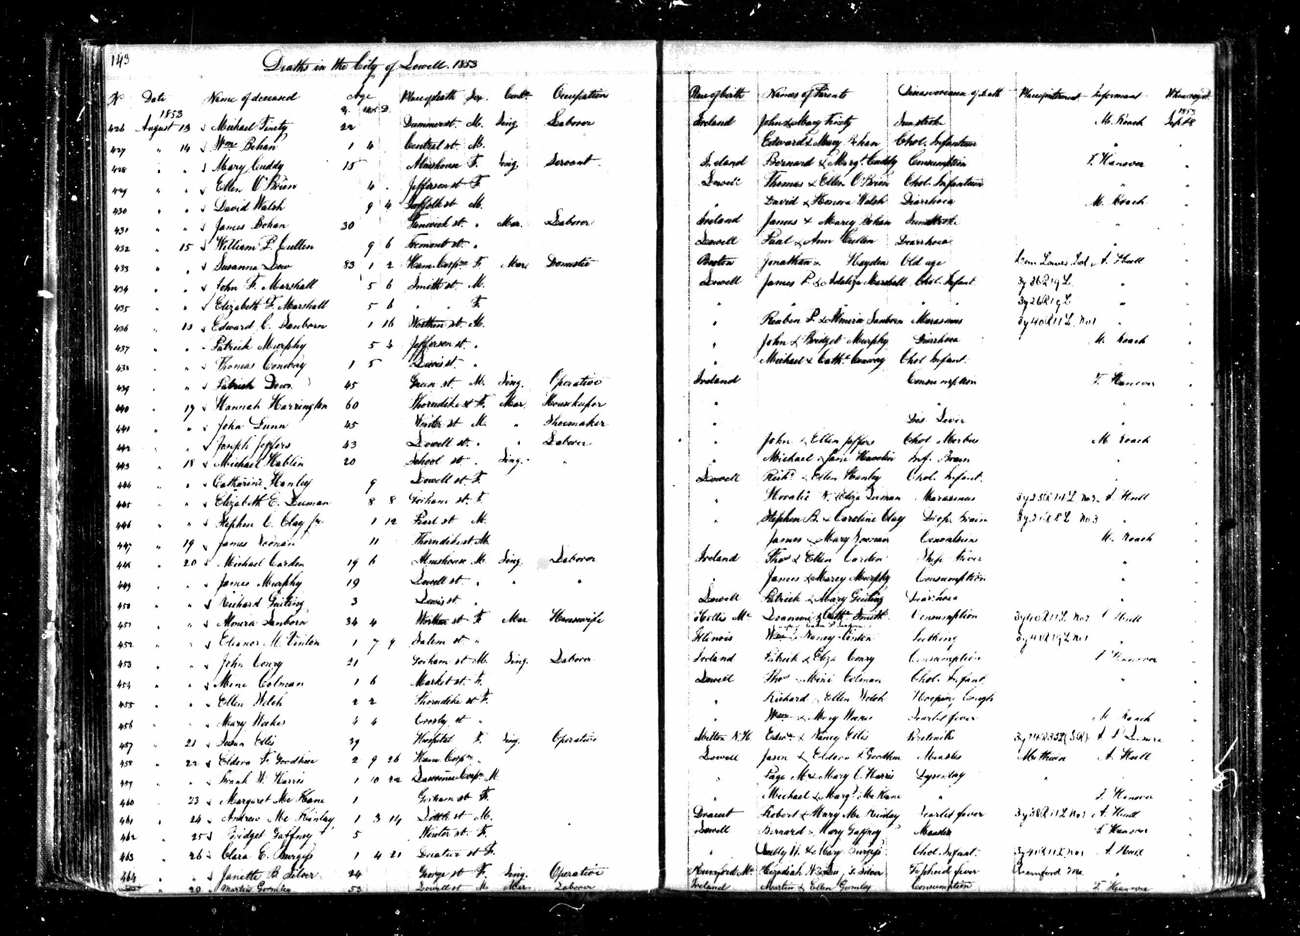 143
Deaths in the City of Lowell. 1853
No Date Name of deceased Age Place of death Sex Cond. Occupation Place of birth Names of Parents Disease or cause of death Place of interment Informant When regist.
1853 Y. M. D. 1853
426 August 13 Michael Finity 22 Summer st. M. Sing. Laborer Ireland John & Mary Finity Sunstroke M. Roach Sept.
427 " 14 Wm. Behan 1 4 Central st. M. Edward & Mary Behan Chol. Infantum "
428 " " Mary Cuddy 15 Almshouse F. Sing. Servant Ireland Bernard & Margt. Cuddy Consumption T. Hanover "
429 " " Ellen O'Brien 4 Jefferson st. F. Lowell Thomas & Ellen O'Brien Chol. Infantum " "
430 " " David Walsh 9 4 Suffolk st. M. " David & Honora Walsh Diarrhoea M. Roach "
431 " " James Behan 30 Fenwick st. " Mar. Laborer Ireland James & Marcy Behan Sunstroke " "
432 " 15 William P. Cullen 9 6 Tremont st. " Lowell Paul & Ann Cullen Diarrhoea " "
433 " " Susanna Dow 83 1 2 Ham. Corpn. F. Mar. Domestic Boston Jonathan & Hayden Old age A. Hull "
434 " " John F. Marshall 5 6 Smith st. M. Lowell James P. & Adaliza Marshall Chol. Infant. " "
435 " " Elizabeth F. Marshall 5 6 " " F. " " " " " "
436 " 13 Edward C. Sanborn 1 16 Worthen st. M. " Reuben P. & Almira Sanborn Marasmus " "
437 " " Patrick Murphy 5 3 Jefferson st. " " John & Bridget Murphy Diarrhoea M. Roach "
438 " " Thomas Conway 1 5 Lewis st. " " Michael & Cath. Conway Chol. Infant. " "
439 " " Patrick Down 45 Green st. M. Sing. Operative Ireland Consumption T. Hanover "
440 " 17 Hannah Harrington 60 Thorndike st. F. Mar. Housekeeper " " " "
441 " " John Dunn 45 Winter st. M. " Shoemaker " Dis. Liver " "
442 " " Joseph Jeffors 43 Lowell st. " " Laborer " John & Ellen Jeffors Chol. Morbus M. Roach "
443 " 18 Michael Hablin 20 School st. " Sing. " " Michael & Jane Inf. Brain " "
444 " " Catharine Hanley 9 Lowell st. F. Lowell Richd. & Ellen Hanley Chol. Infant. " "
445 " " Elizabeth E. Inman 8 8 Gorham st. F. " Horatio & Eliza Inman Marasmus A. Hull "
446 " " Stephen C. Clay Jr. 1 12 Pearl st. M. " Stephen & Caroline Clay Brain " "
447 " 19 James Noonan 11 Thorndike st. M. " James & Mary Noonan Convulsions M. Roach "
448 " 20 Michael Carden 19 6 Almshouse M. Sing. Laborer Ireland Thos. & Ellen Carden fever " "
449 " " James Murphy 19 Lowell st. " " " " James & Marcy Murphy Consumption " "
450 " " Richard Guiting 3 Lewis st. " Lowell Patrick & Mary Guiting Diarrhoea " "
451 " " Almira Sanborn 34 4 Worthen st. F. Mar. Housewife Hollis Me. Smith Consumption A. Hull "
452 " " Eleanor M. Finton 1 7 9 Salem st. " Illinois Wm. & Nancy Teething " "
453 " " John Conry 21 Gorham st. M. Sing. Laborer Ireland Patrick & Eliza Conry Consumption T. Hanover "
454 " " Mine Colman 1 6 Market st. F. Lowell Thos. & Mine Colman Chol. Infant. " "
455 " " Ellen Welch 2 2 Thorndike st. F. " Richard & Ellen Welch Hooping Cough " "
456 " " Mary Weeks 4 4 Crosby st. " " Wm. & Mary Scarlet fever M. Roach "
457 " 21 Susan Ellis 29 Hospital F. Sing. Operative Milton N.H. Edwd. & Nancy Ellis "
458 " 22 Eldora F. Goodhue 2 9 26 Ham. Corpn. " Lowell Jason & Eldora F. Goodhue Measles Methuen A. Hull "
459 " " Frank W. Harris 1 10 22 Lawrence Corpn. M. " Page M. & Mary C. Harris Dysentery " "
460 " 23 Margaret Mc Kane 1 Gorham st. F. " Michael & Margt. Mc Kane " T. Hanover "
461 " 24 Andrew Mc Kinlay 1 3 14 st. M. Dracut Robert & Mary Scarlet fever A. Hull "
462 " 25 Bridget Gaffney 5 Winter st. F. Lowell Bernard & Mary Gaffney Measles T. Hanover "
463 " 26 Clara E. Burgess 1 4 21 Decatur st. F. " & Mary Burgess Chol. Infant. A. Hull "
464 " " Janette B. Silver 24 George st. F. Sing. Operative Rumford Me. Hezediah Silver Typhoid fever Rumford Me. "
" 20 Martin Gormley 53 Lowell st. M. Mar. Laborer Ireland Martin & Ellen Gormley Consumption T. Hanover "